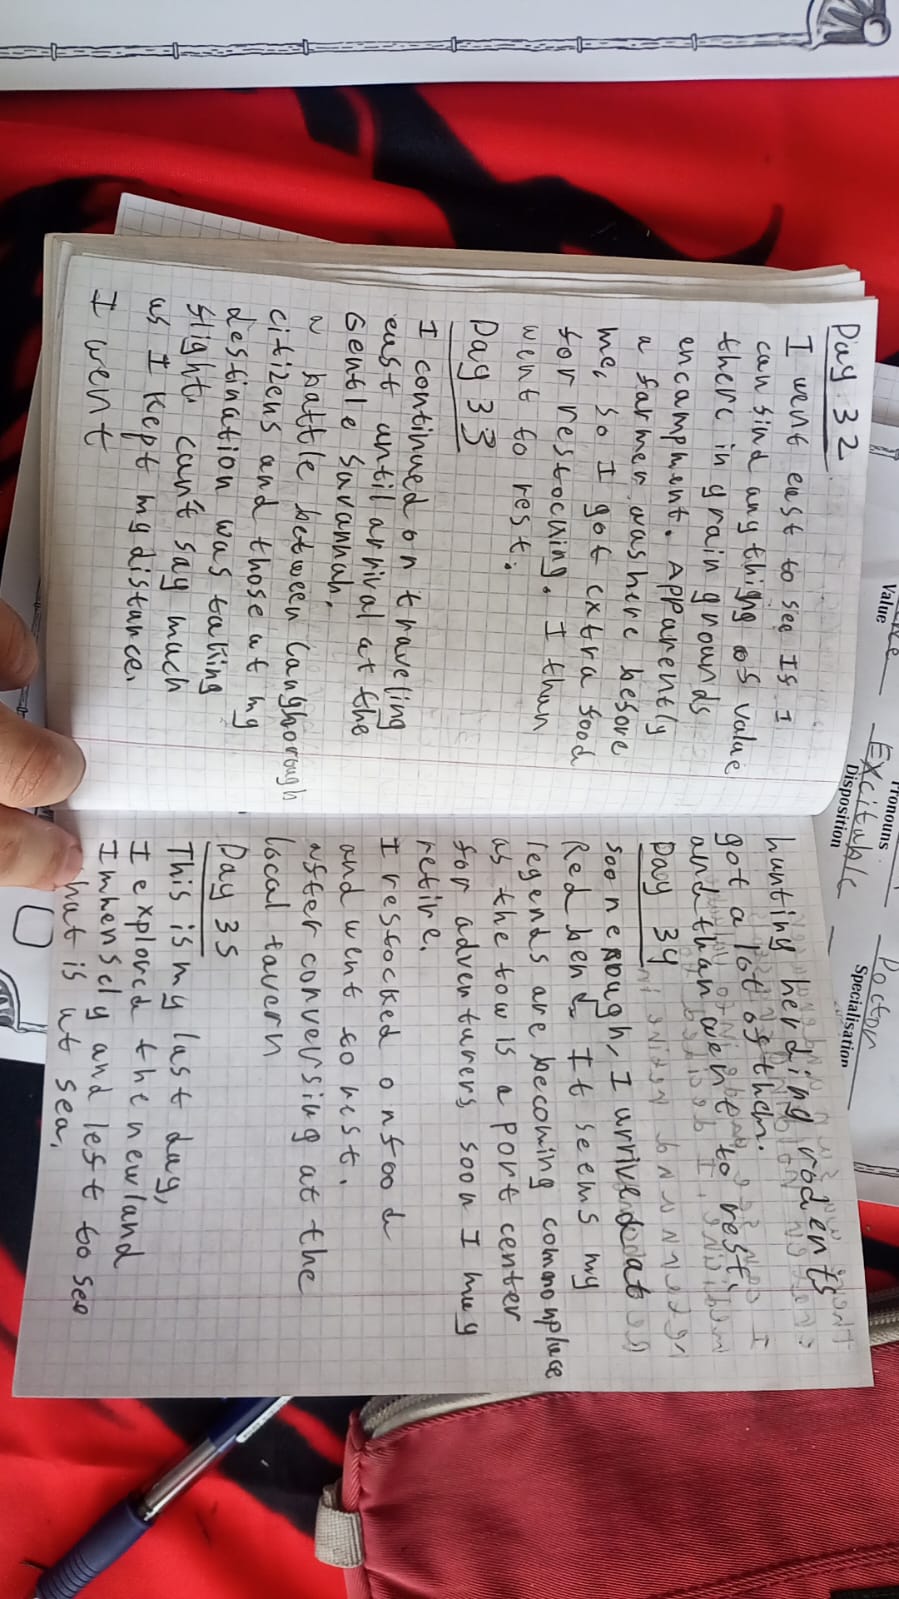 Day 32
I went east to see Is I
can sind anything os value
there in grain grounds
encampment. Apparently
a farmer was here besore
me, so I got extra sood
for restocking. I than
went to rest.
Day 33
I continued on traveling
east until arrival at the
Gentle Savannah.
a battle between
citizens and those at my
destination was taking
slight. can't say much
as I kept my distance.
I went
hunting herding rodents
got a lot os them.
and than went to rest.
Day 34
soon enough, I arrived at
Red bend. It seems my
legends are becoming commonplace
as the tow is a port center
for adventurers, soon I may
retire.
I restocked on food
and went to rest.
after conversing at the
local tavern
Day 35
This is my last day,
I explored the newland
Immensely and lest to see
what is at sea.
Value
Pronouns
Excitable
Disposition
Doctor
Specialisation